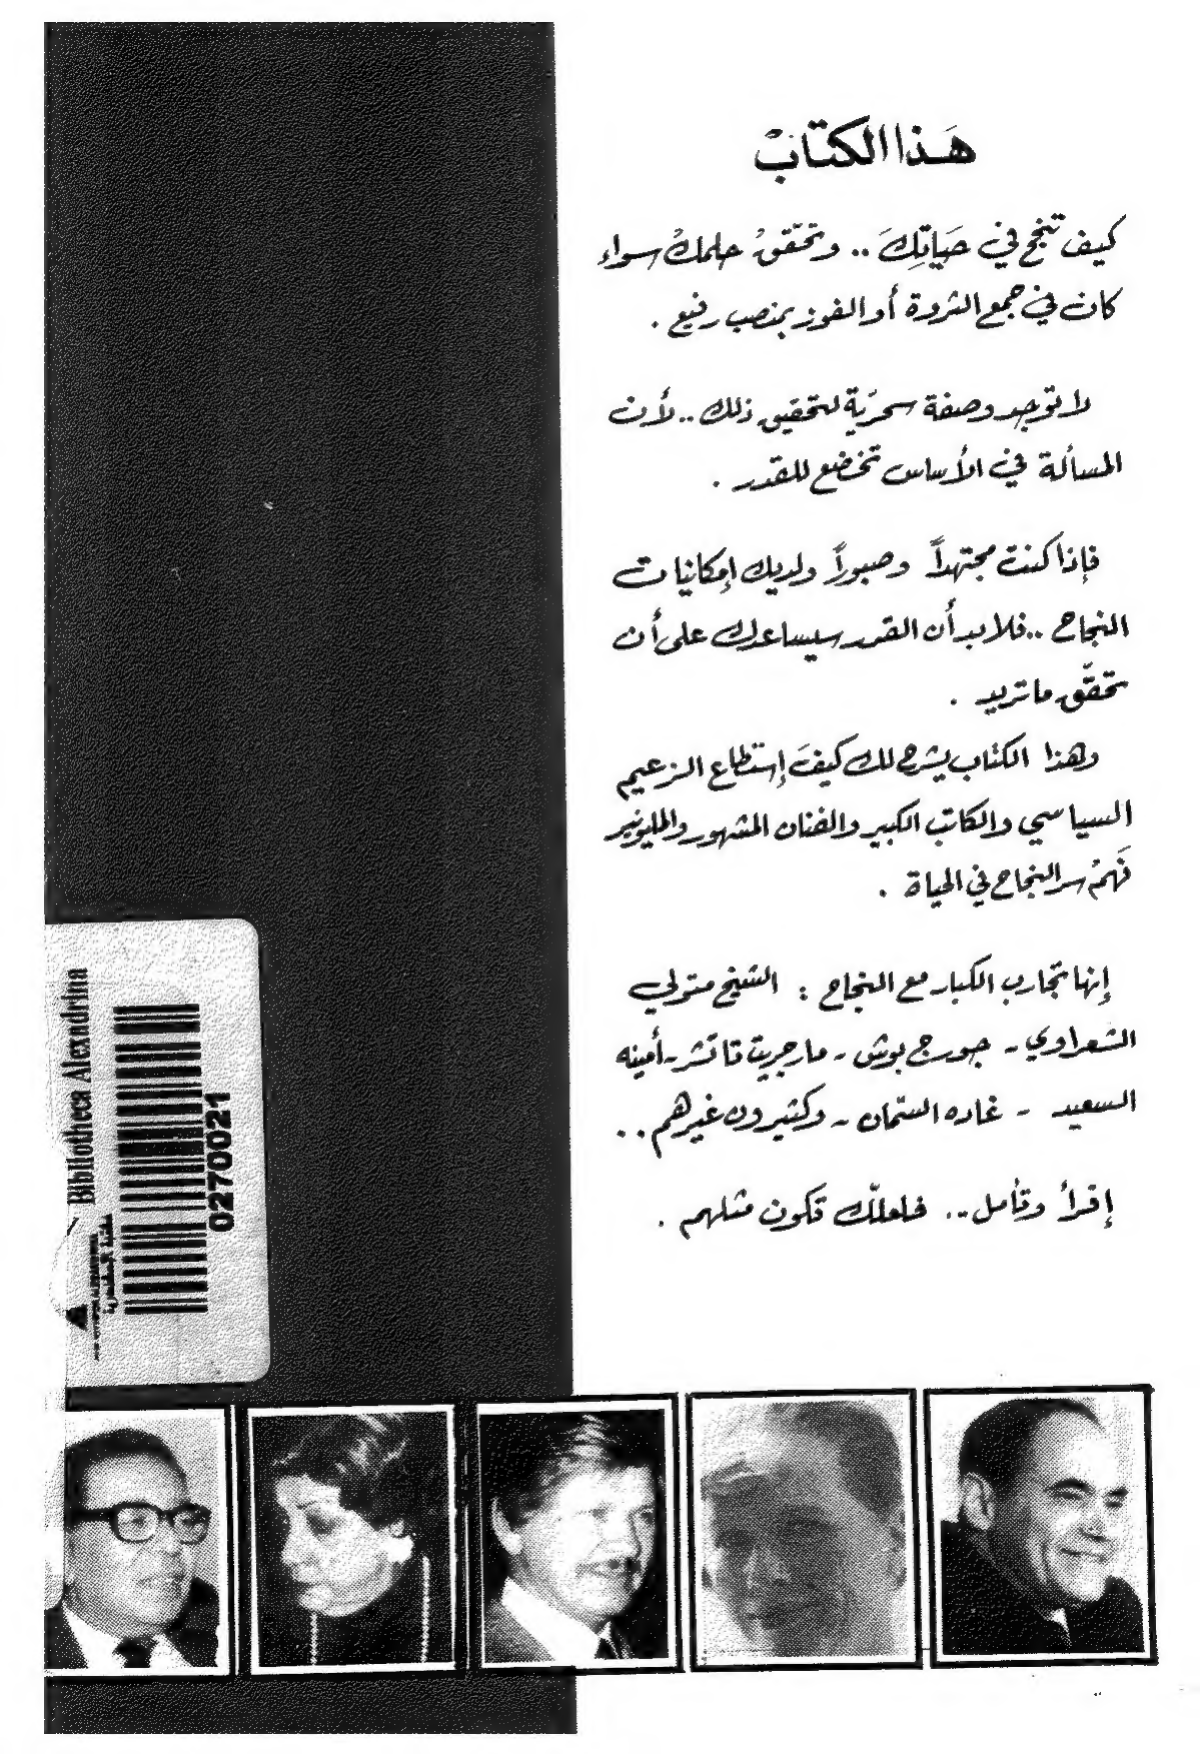 هَذا الكتابْ
كيف تنجح في حَياتِكَ .. وتحقّقُ حلمكُ سواء
كان في جمع الثروة أو الفوز بمنصب رفيع .
لا توجد وصفة سحريّة لتحقيق ذلك .. لأن
المسألة في الأساس تخضع للقدر .
فإذا كنت مجتهداً وصبوراً ولديك إمكانيات
النجاح .. فلابد أن القدر سيساعدك على أن
تحقّق ما تريد .
وهذا الكتاب يشرح لك كيفَ إستطاع الزعيم
السياسي والكاتب الكبير والفنان المشهور والمليونير
فَهمْ سر النجاح في الحياة .
إنها تجارب الكبار مع النجاح : الشيخ متولي
الشعراوي - جورج بوش - مارجريت تاتشر - أمينه
السعيد - غاده السمّان - وكثيرون غيرهم ..
إقرأ وتأمل .. فلعلّك تكون مثلهم .
Bibliotheca Alexandrina
0270021